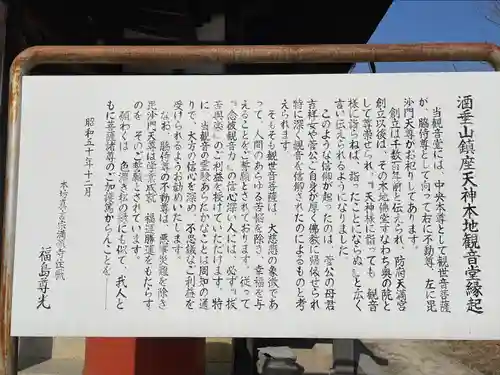 酒垂山鎮座天神本地観音堂縁起
当観音堂には、中央本尊として観世音菩薩
が、脇侍尊として向って右に不動尊、左に毘
沙門天尊がお祀りしてあります。
創立は千数百年前と伝えられ、防府天満宮
創立以後は、その本地佛堂すなわち奥の院と
して営景せられ、『天神様に詣っても、観音
様に詣らねば、詣ったことにならぬ』と広く
言い伝えられるようになりました。
このような信仰が起ったのは、菅公の母君
吉祥女や菅公ご自身が厚く佛教に帰依せられ
特に深く観音を信解されたのによるものと考
えられます。
そもそも観世音菩薩は、大慈悲の象徴であ
って、人間のあらゆる苦悩を除き、幸福を与
えることをご誓願とされております。従って
『念彼観音力』の信心深い人には、必ず『抜
苦与楽』のご利益を授けていただけます。特
に、当観音の霊験あらたかなことは周知の通
りで、大方の信心を深め、不思議なご利益を
受けられるようお勧めいたします。
なお、脇侍尊の不動尊は、悪事災難を除き
毘沙門天尊は学業成就、福運勝運をもたらす
のを、そのご誓願とされています。
願わくは、色濃き松の緑にも似て、我人と
もに菩薩諸尊のご加護篤からんことを――
昭和五十年十二月
福島尊光